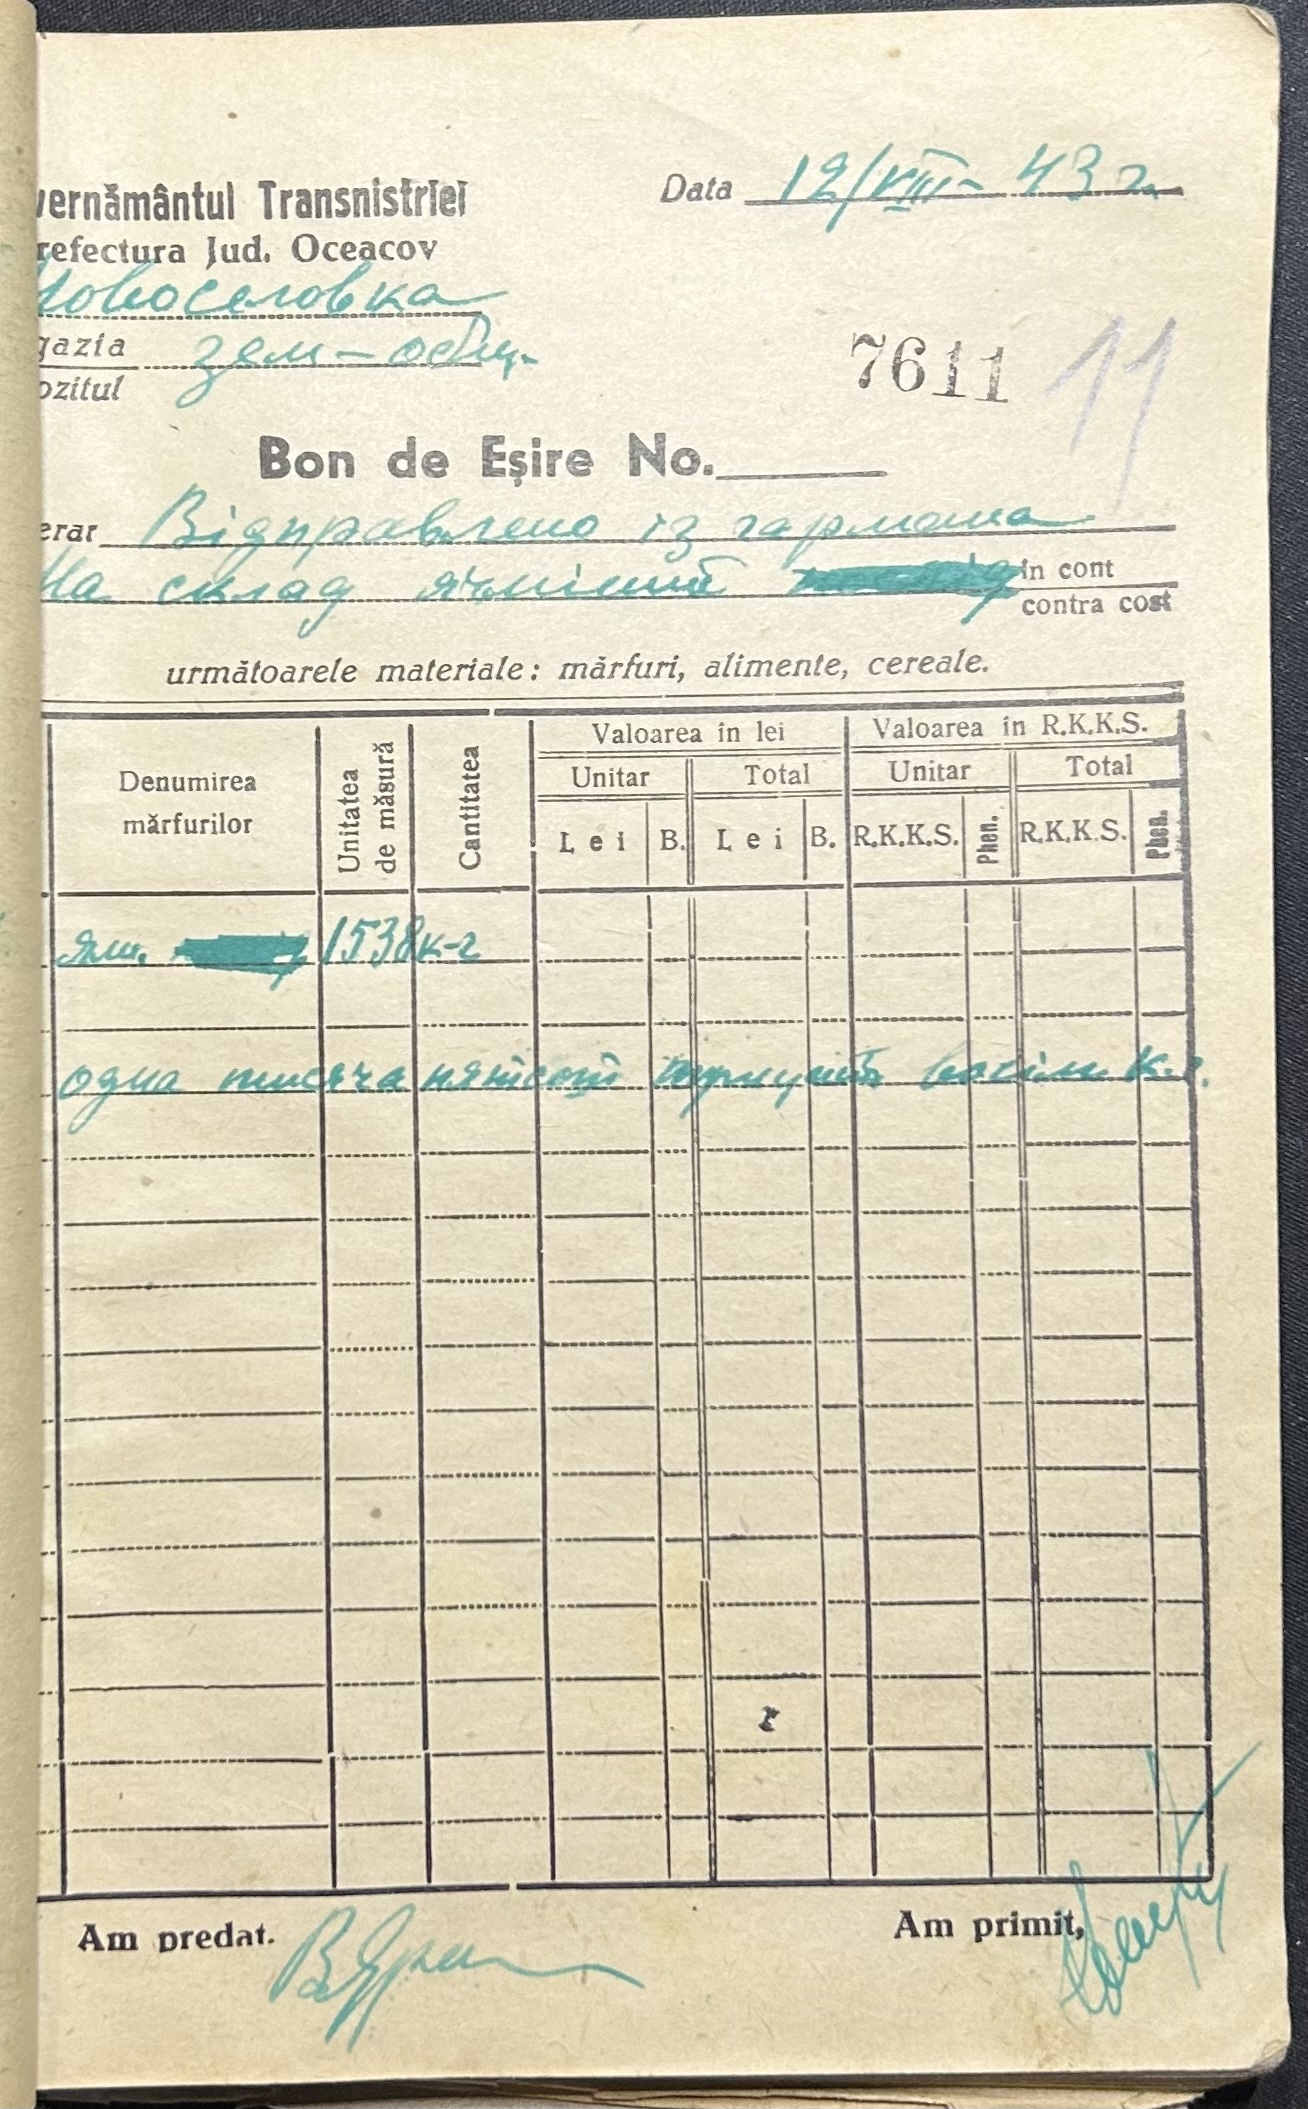 vernământul Transnistriei
Data 12/VIII - 43 г.
refectura Jud. Oceacov
Новоселовка
gazia зем-общ.
ozitul
7611 11
Bon de Eşire No.
erar Відправлено із гармана
На склад ячміний in cont
contra cost
următoarele materiale: mărfuri, alimente, cereale.
Denumirea mărfurilor
Unitatea de măsură
Cantitatea
Valoarea în lei
Valoarea în R.K.K.S.
Unitar Total Unitar Total
Lei B. Lei B. R.K.K.S. Phen. R.K.K.S. Phen.
ячм. 1538 к-г
одна тисяча пятсот трицять восім к.г.
Am predat.
Am primit,